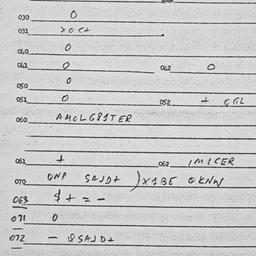 030 0
031 > O C +
040 0
041 0 042 0
050 0
051 0 052 + Q G L
060 A M O L G P I T E R
061 + 062 I M I C E R
070 Q N P S A J D + ) X 1 B E Q K N W
063 $ + = -
071 0
072 - Q S A J D +